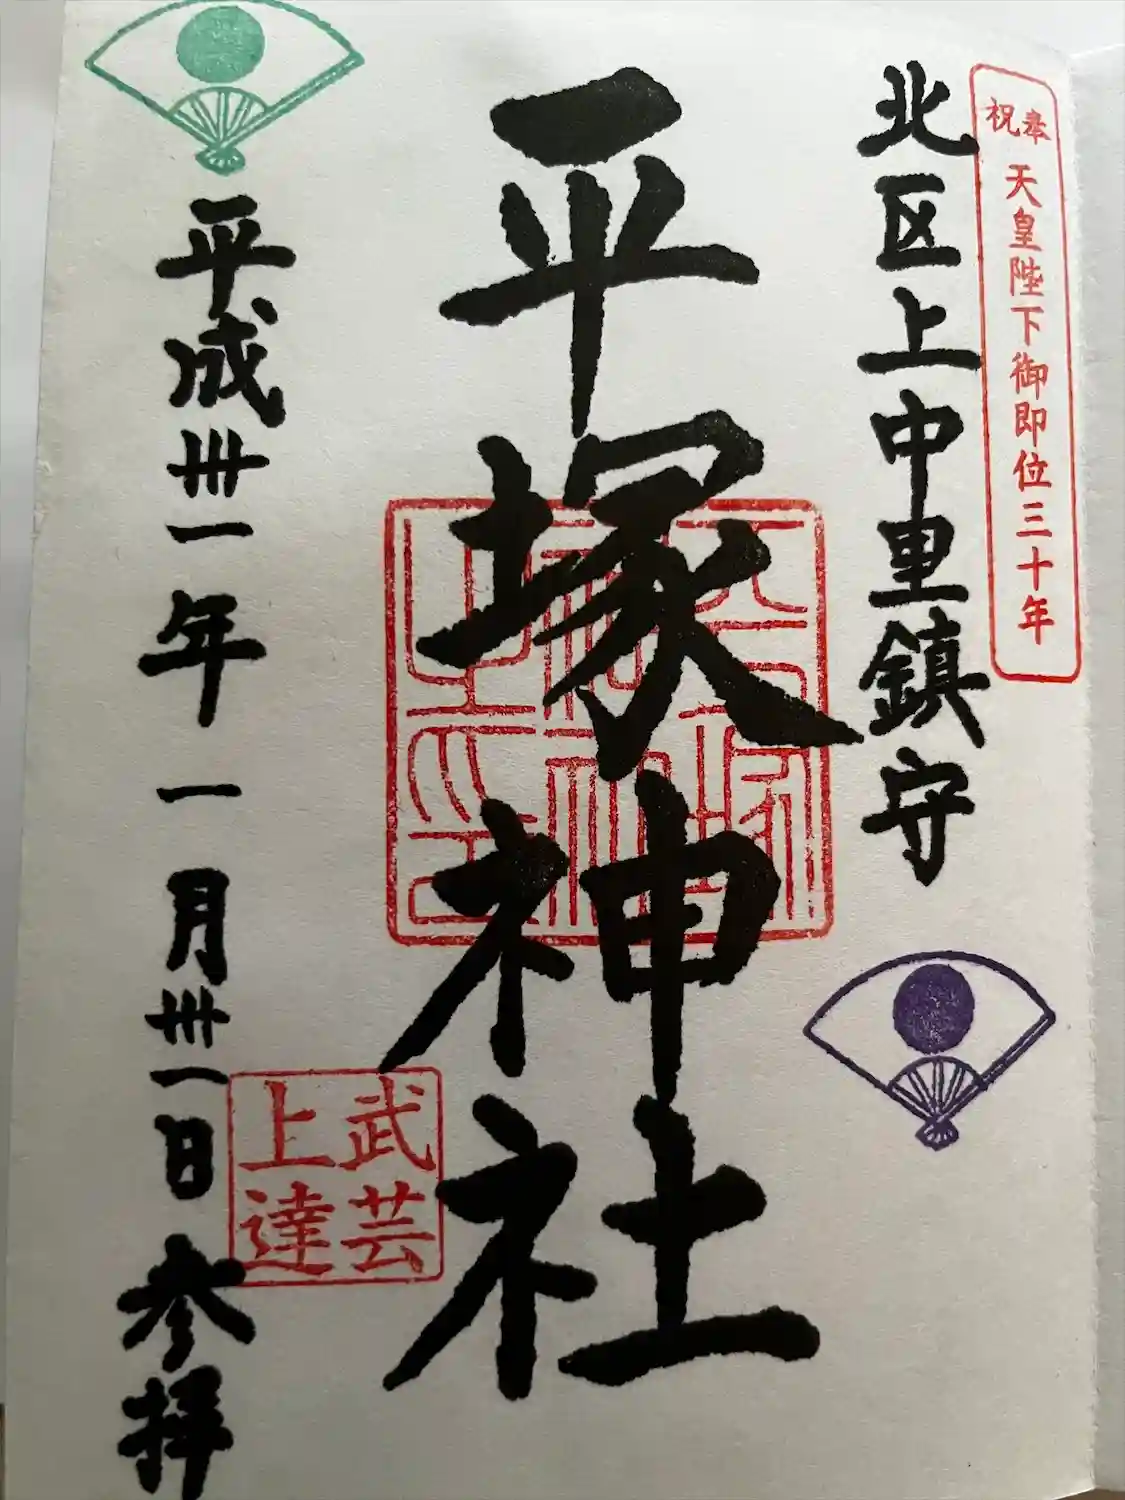 奉祝 天皇陛下御即位三十年
北区上中里鎮守
平塚神社
武芸上達
平成卅一年一月卅一日参拝